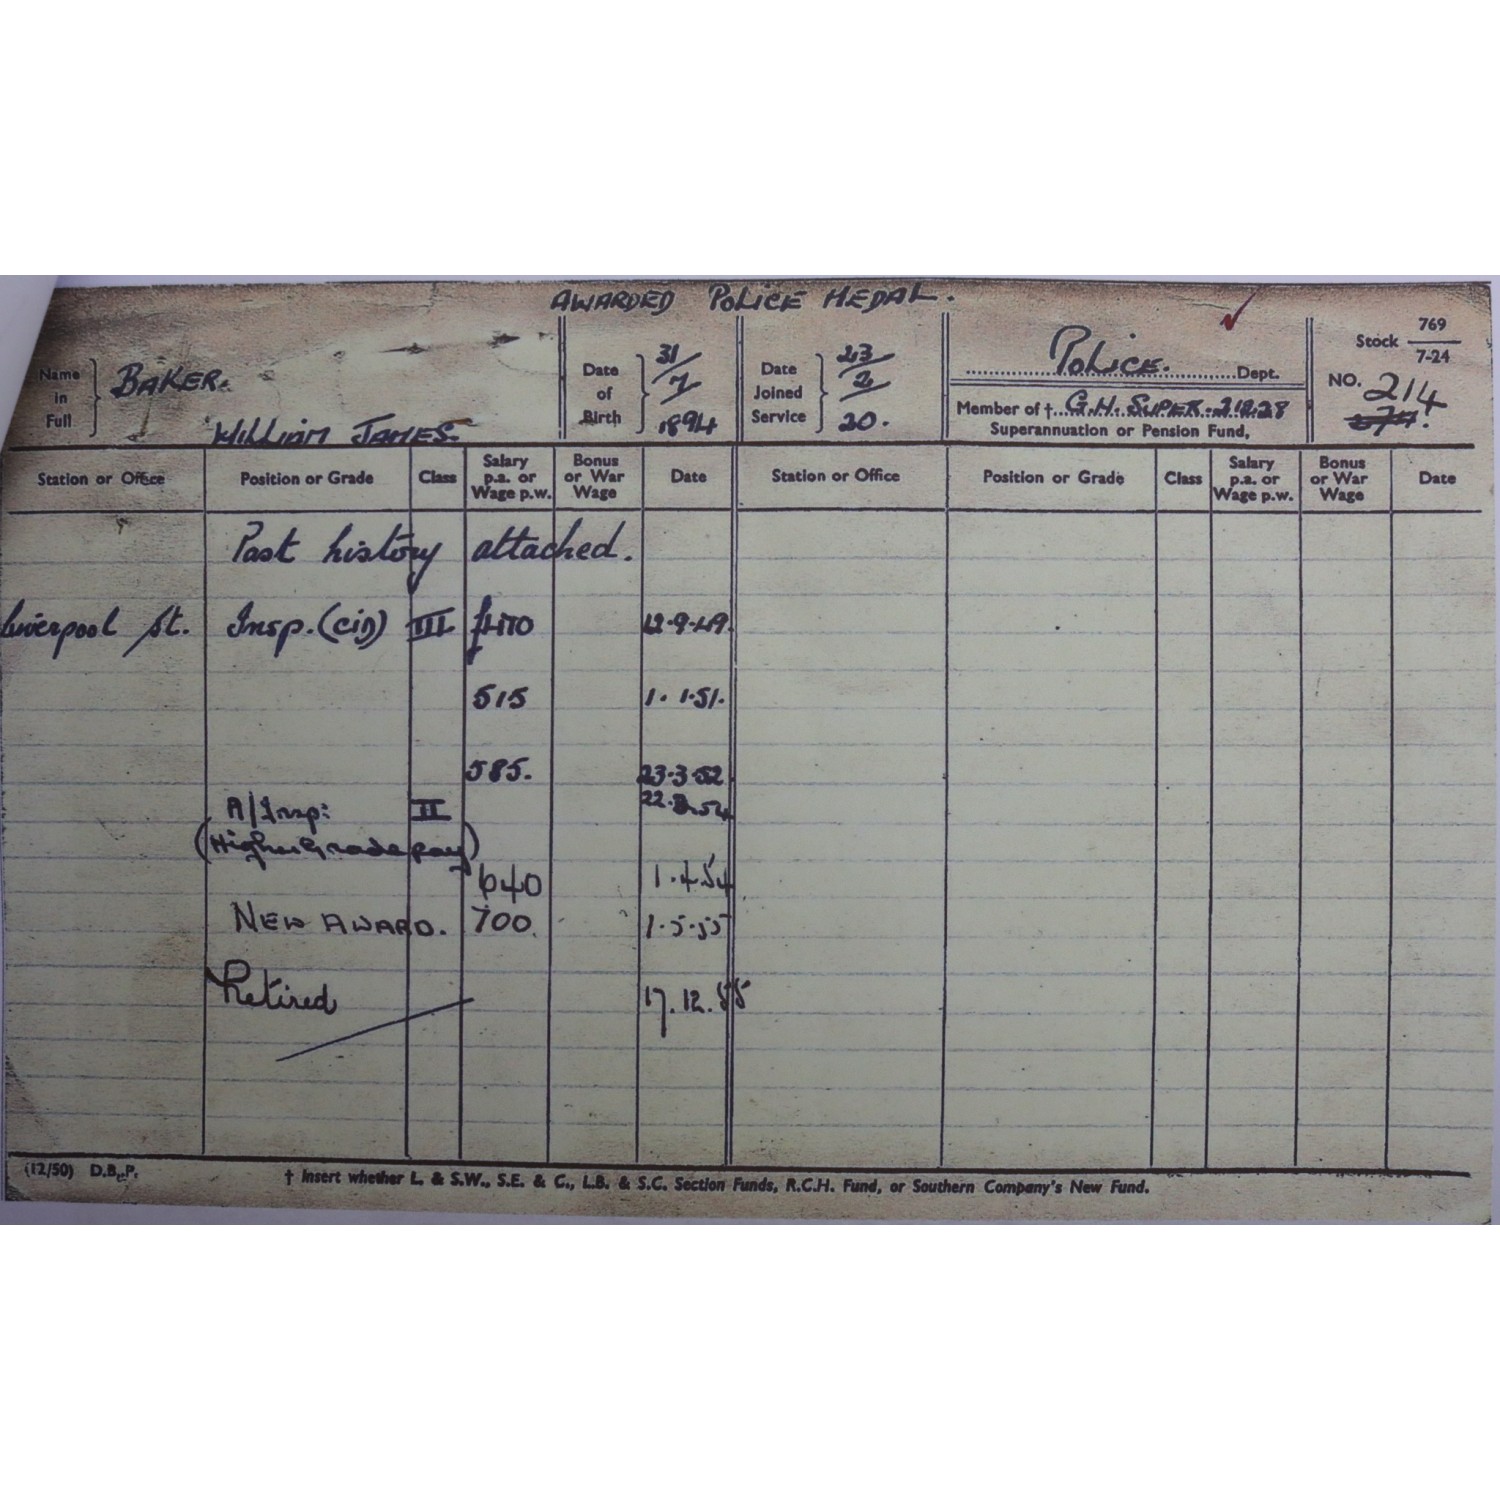 AWARDED POLICE MEDAL.
Name in Full } BAKER. WILLIAM JAMES
Date of Birth } 31/7/1894
Date Joined Service } 23/2/20.
POLICE. Dept.
Member of † G.H. SUPER. Superannuation or Pension Fund,
Stock 769/7-24
NO. 214
Station or Office Position or Grade Class Salary p.a. or Wage p.w. Bonus or War Wage Date Station or Office Position or Grade Class Salary p.a. or Wage p.w. Bonus or War Wage Date
Past history attached.
Liverpool St. Insp. (CID) III 12.9.49.
515 1.1.51.
585. 23.3.52
A/Insp: II
(Higher Grade pay)
640 1.4.54
NEW AWARD. 700. 1.5.55
Retired 17.12.55
(12/50) D.B.P.
† Insert whether L. & S.W., S.E. & C., L.B. & S.C. Section Funds, R.C.H. Fund, or Southern Company's New Fund.